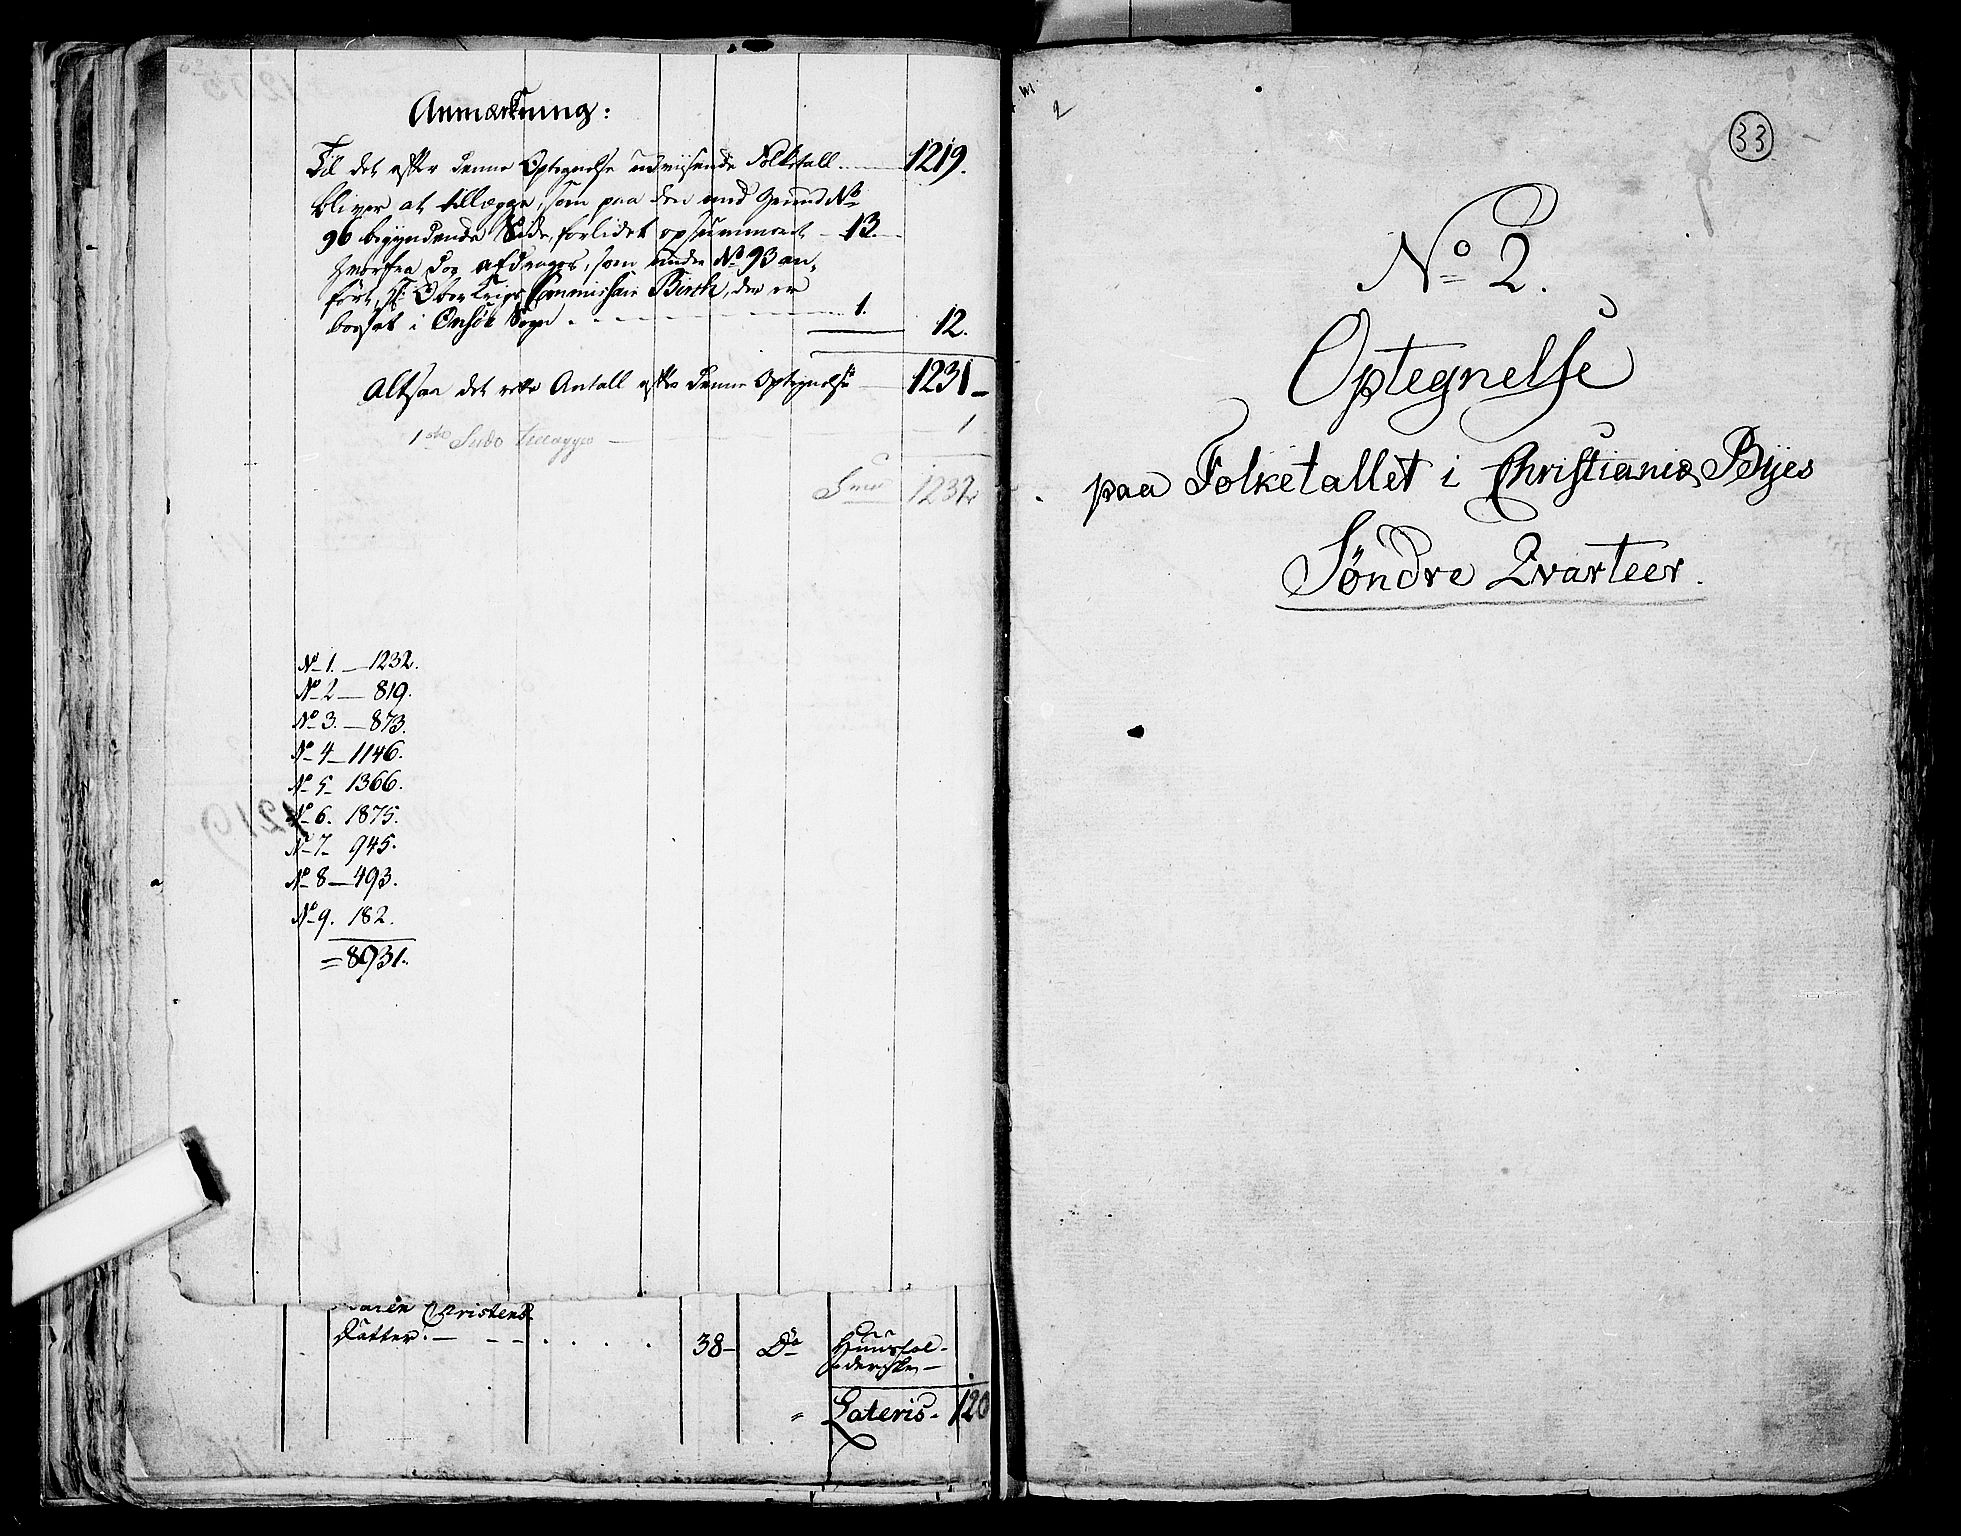 Anmærkning:
Til det efter denne Optegnelse udvisende Folketall 1219.
bliver at tillægge, som paa den med Grund No
96 begyndende Side, forlidet opsummeret 13.
hvorfra dog afdrages, som under No 93 an-
ført, Ober Krigs Commissair Birch, der er
boesat i Onsøe Sogn 1. 12.
Altsaa det rette Antall efter denne Optegnelse 1231
1 Side tillægges 1
1232
No 1. 1232.
No 2 819.
No 3. 873.
No 4 1146.
No 5 1366.
No 6. 1875.
No 7 945.
No 8 493.
No 9. 182.
= 8931.
Maren Christens
Datter. 38 Do Huushol-
derske
Lateris 120
2
33
No 2.
Optegnelse
paa Folketallet i Christiania Byes
Søndre Qvarteer.